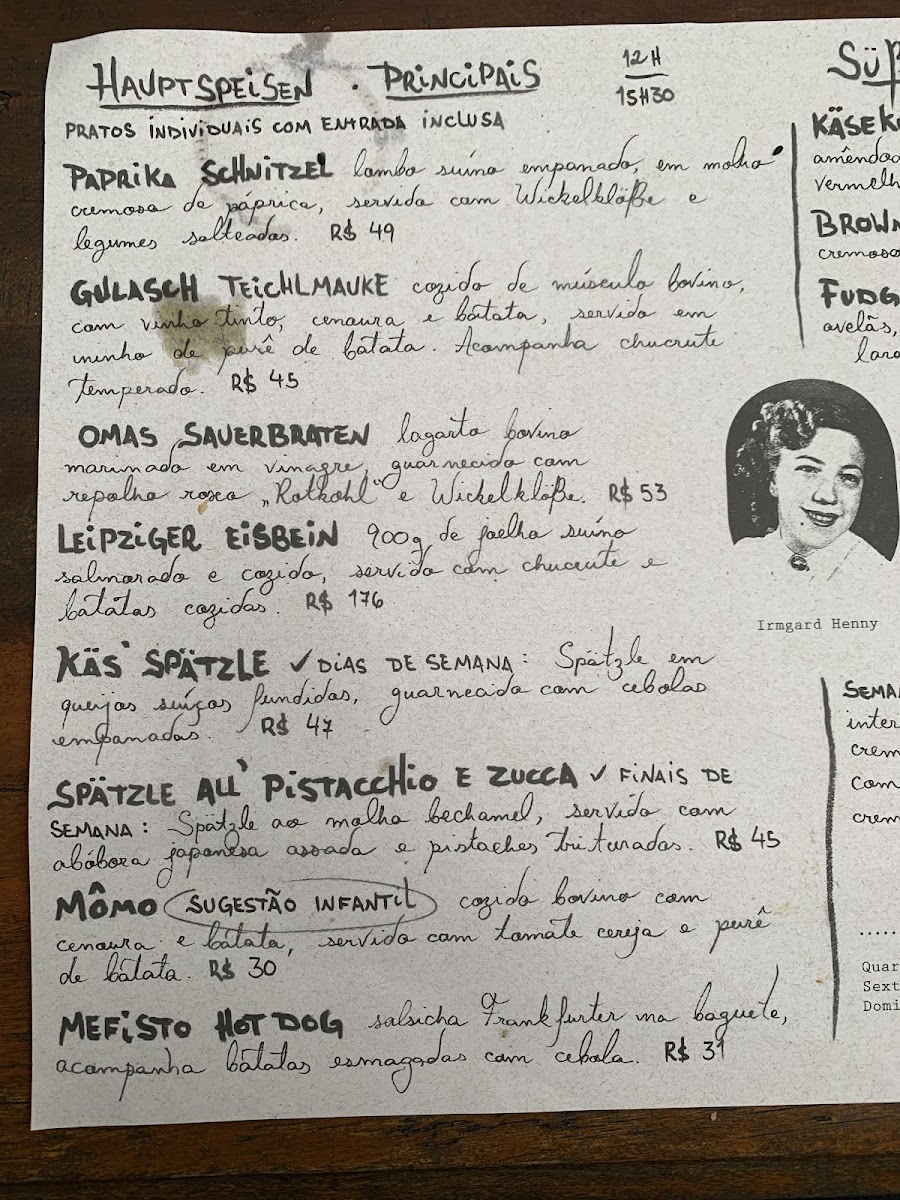 HAUPTSPEISEN · PRINCIPAIS
12H
15H30
PRATOS INDIVIDUAIS COM ENTRADA INCLUSA
PAPRIKA SCHNITZEL lombo suíno empanado, em molho
cremoso de páprica, servido com Wickelklöße e
legumes salteados. R$ 49
GULASCH TEICHLMAUKE cozido de músculo bovino,
com vinho tinto, cenoura e batata, servido em
ninho de purê de batata. Acompanha chucrute
temperado. R$ 45
OMAS SAUERBRATEN lagarto bovino
marinado em vinagre, guarnecido com
repolho roxo „Rotkohl“ e Wickelklöße. R$ 53
LEIPZIGER EISBEIN 900g de joelho suíno
salmorado e cozido, servido com chucrute e
batatas cozidas. R$ 176
KÄS' SPÄTZLE ✓ DIAS DE SEMANA: Spätzle em
queijos suíços fundidos, guarnecido com cebolas
empanadas. R$ 47
SPÄTZLE ALL' PISTACCHIO E ZUCCA ✓ FINAIS DE
SEMANA: Spätzle ao molho bechamel, servido com
abóbora japonesa assada e pistaches triturados. R$ 45
MÔMO SUGESTÃO INFANTIL cozido bovino com
cenoura e batata, servido com tomate cereja e purê
de batata. R$ 30
MEFISTO HOT DOG salsicha Frankfurter na baguete,
acompanha batatas esmagadas com cebola. R$ 31
SÜß
KÄSEK
amêndoa
vermelh
BROWN
cremoso
FUDG
avelãs,
lara
Irmgard Henny
SEMA
inter
crem
com
crem
.....
Quar
Sext
Domi